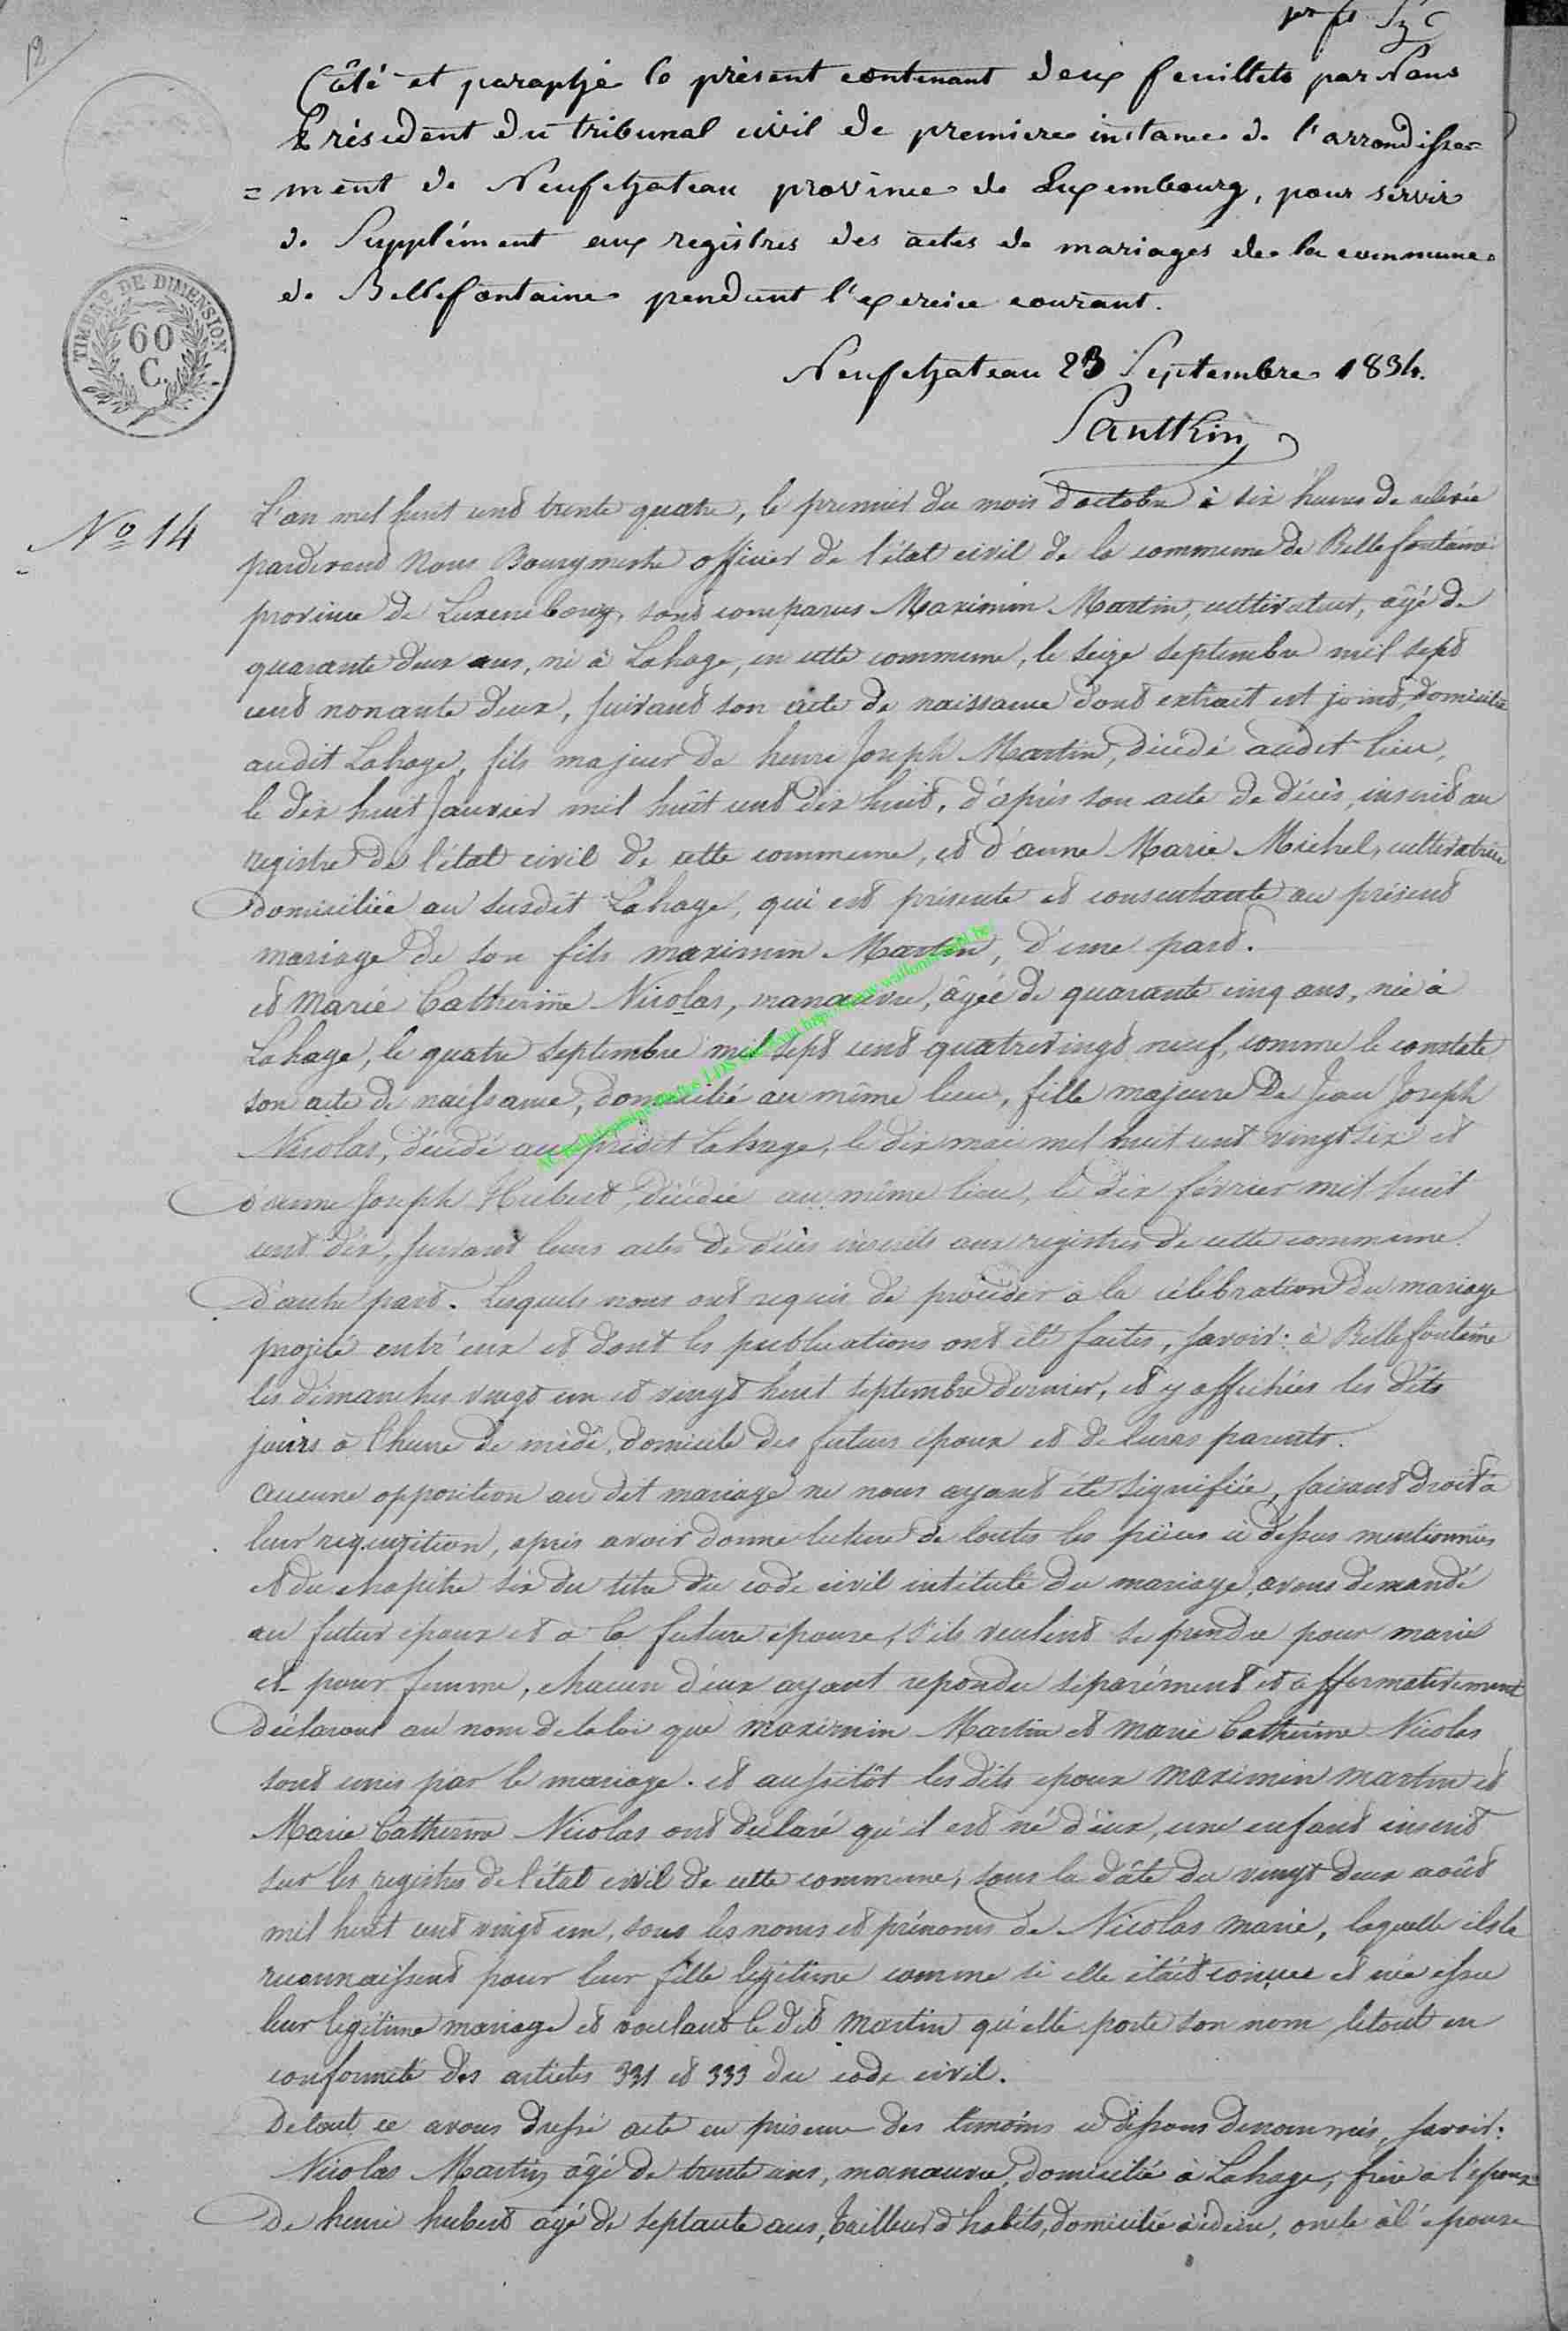 12
1er ft
Côté et paraphé le présent contenant deux feuillets par Nous
Président du tribunal civil de premiere instance de l'arrondisse=
=ment de Neufchateau province de Luxembourg, pour servir
de Supplément aux registres des actes de mariages de la commune
de Bellefontaine pendant l'exercice courant.
TIMBRE DE DIMENSION
60
C.
Neufchateau 23 Septembre 1834.
No 14
L'an mil huit cent trente quatre, le premier du mois d'octobre à six heures de relevée
pardevant Nous Bourgmestre officier de l'état civil de la commune de Bellefontaine
province de Luxembourg, sont comparus Maximin Martin, cultivateur, âgé de
quarante deux ans, né à Lahage, en cette commune, le seize septembre mil sept
cent nonante deux, suivant son acte de naissance dont extrait est joint, domicilié
audit Lahage, fils majeur de henri Joseph Martin, décédé audit lieu,
le dix huit Janvier mil huit cent dix huit, d'après son acte de décès, inscrit au
registre de l'état civil de cette commune, et d'anne Marie Michel, cultivatrice
domiciliée au susdit Lahage, qui est présente et consentante au présent
mariage de son fils maximin Martin, d'une part.
et Marie Catherine Nicolas, manœuvre, âgée de quarante cinq ans, née à
Lahage, le quatre septembre mil sept cent quatrevingt neuf, comme le constate
son acte de naissance, domiciliée au même lieu, fille majeure de Jean Joseph
Nicolas, décédé au prédit Lahage, le dix mai mil huit cent vingt six et
d'anne Joseph Hubert, décédée au même lieu, le dix février mil huit
cent dix, suivant leurs actes de décès inscrits aux registres de cette commune.
d'autre part. Lesquels nous ont requis de procéder à la célébration du mariage
projeté entr'eux et dont les publications ont été faites, savoir: à Bellefontaine
les dimanches vingt un et vingt huit septembre dernier, et y affichées les dits
jours à l'heure de midi, domicile des futurs époux et de leurs parents.
aucune opposition au dit mariage ne nous ayant été signifiée, faisant droit à
leur requisition, après avoir donné lecture de toutes les pièces ci dessus mentionnées
et du chapitre six du titre du code civil intitulé du mariage, avons demandé
au futur époux et à la future épouse, s'ils veulent se prendre pour mari
et pour femme, chacun d'eux ayant repondu séparément et affirmativement
déclarons au nom de la loi que maximin Martin et marie Catherine Nicolas
sont unis par le mariage. et aussitôt les dits époux maximin martin et
Marie Catherine Nicolas ont déclaré qu'il est né d'eux, une enfant inscrit
sur les registres de l'état civil de cette commune, sous la date du vingt deux août
mil huit cent vingt un, sous les noms et prénoms de Nicolas marie, laquelle ils la
reconnaissent pour leur fille légitime comme si elle était conçue et née
leur légitime mariage et voulant le dit Martin qu'elle porte son nom le tout en
conformité des articles 331 et 333 du code civil.
De tout ce avons dressé acte en présence des témoins ci dessous dénommés, savoir:
Nicolas Martin, âgé de trente ans, manœuvre, domicilié à Lahage, frère à l'époux
De henri hubert âgé de septante ans, tailleur d'habits, domicilié à idem, oncle à l'épouse